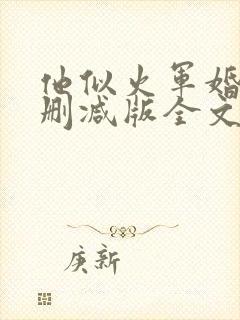 他似火军婚
删减版全文
庚新